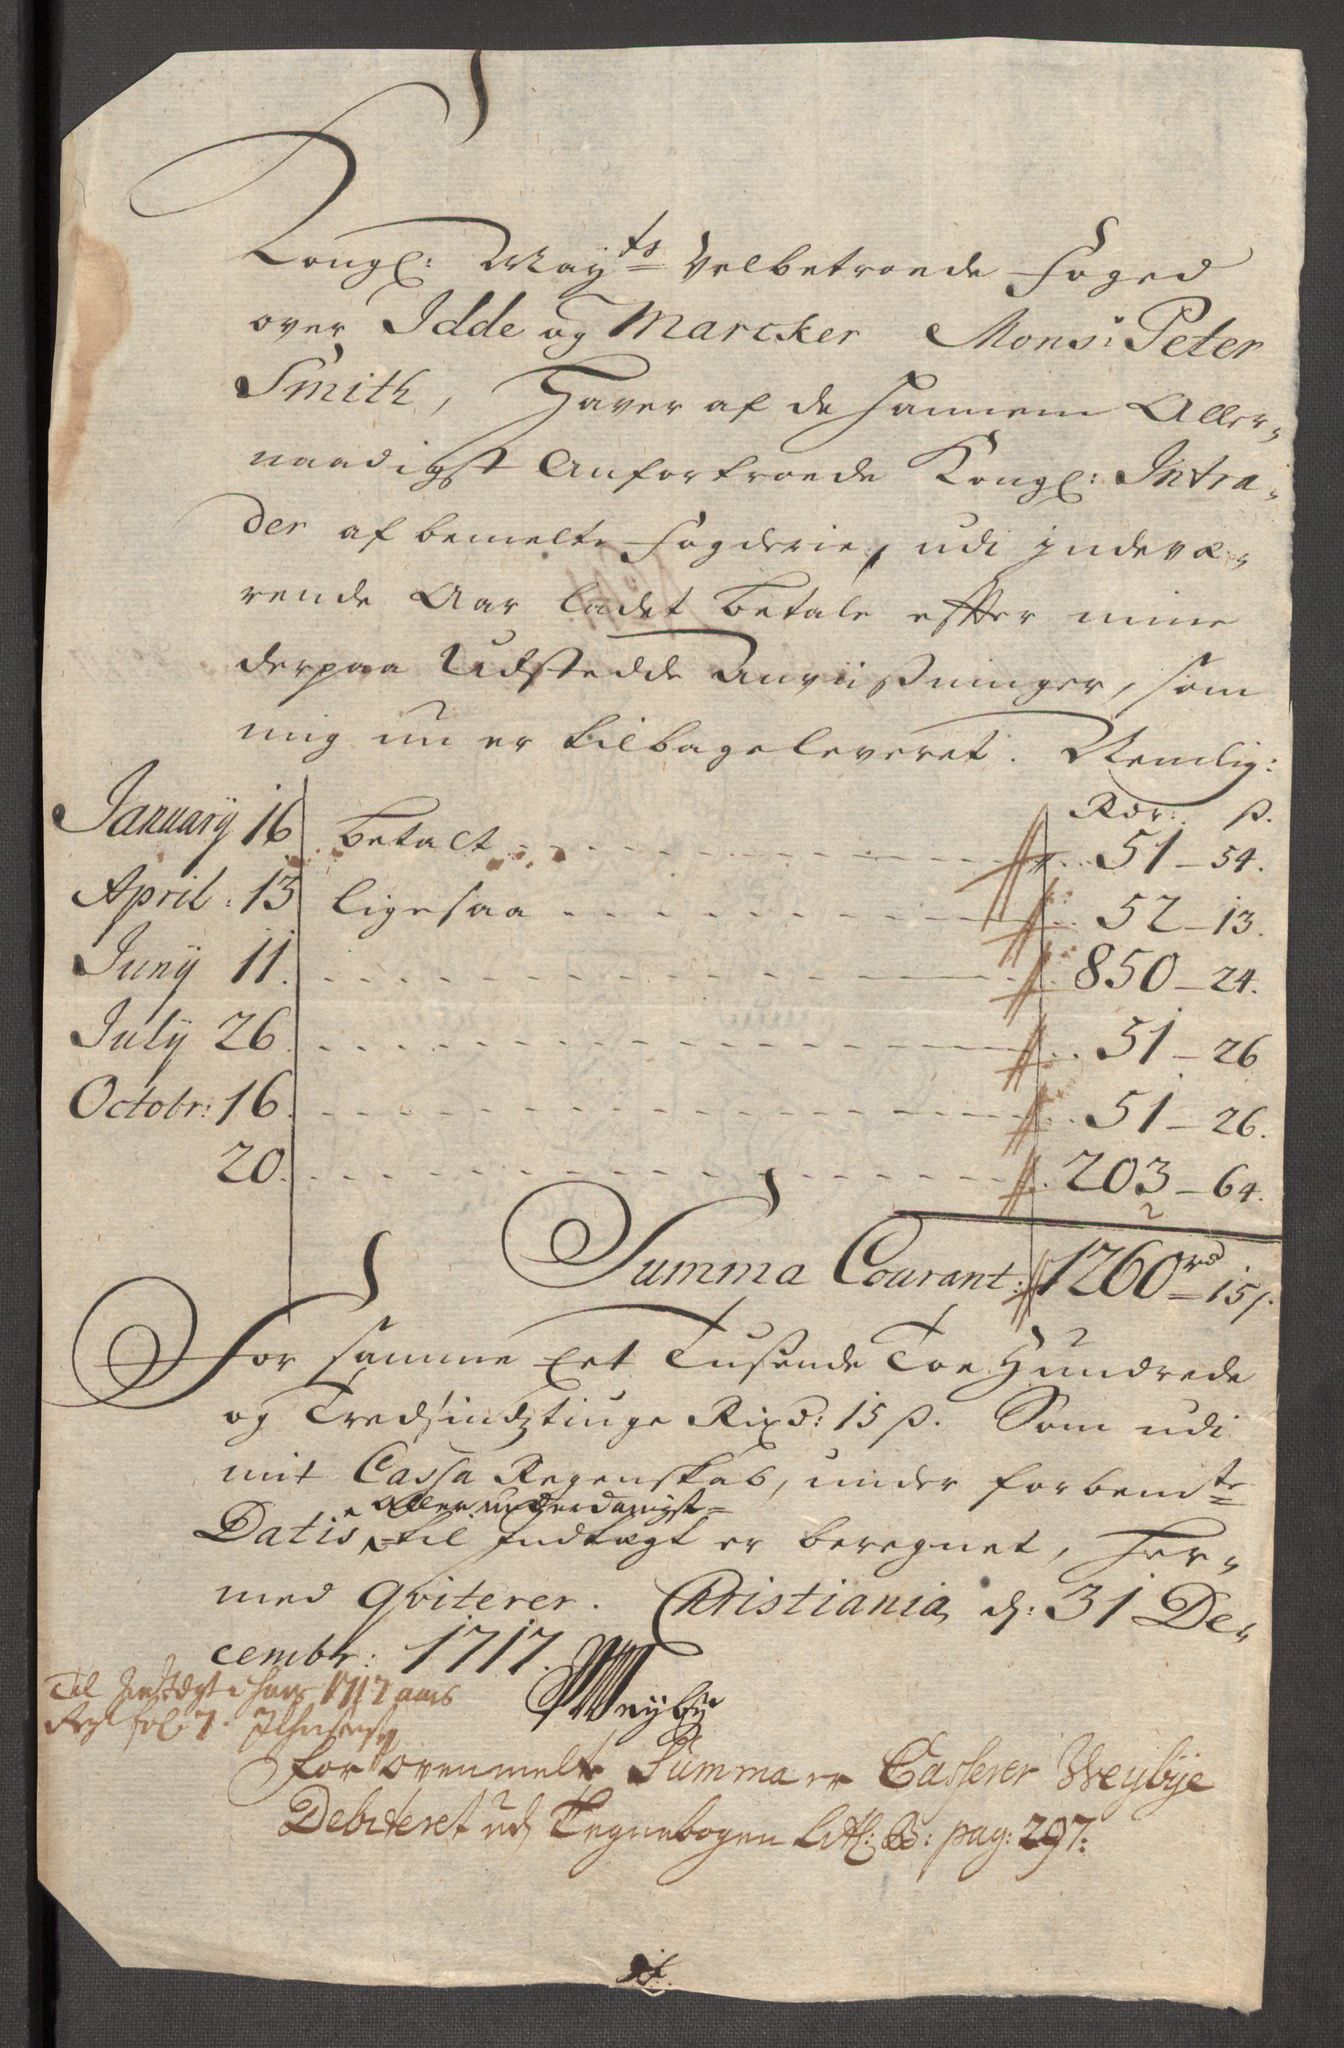 Kongl: Mayts Velbetroede Foged
over Idde og Marcker Monsr: Peter
Smith, Haver af de hannem Aller-
naadigst Anfortroede Kongl: Intra-
der af bemelte Fogderie, udi indevæ-
rende Aar ladet betale effter mine
derpaa Udstedde Anviißninger, som
mig nu er tilbageleveret. Nemlig:
Rdr: ß.
January 16 betalt 51 - 54.
April: 13 ligesaa 52 - 13.
Juny 11. 850 - 24.
July 26. 51 - 26
Octobr: 16. 51 - 26.
20. 203 - 64.
2
Summa Courant: 1260 rd - 15 ß.
For samme Eet Tusende Toe Hundrede
og Tredsindztiuge Rixd: 15 ß. Som udi
mit Cassa Regenskab, under forbemte
allerunderdanigst
Datis til Indtægt er beregnet, her-
med qviterer. Christiania d: 31 De-
cembr: 1717.
Weybye
Til Indtægt i hans 1717 aars
fol 7.
For ovenmelte Summa er Casserer Weybye
Debiteret udj Tegnebogen Litl: B: pag: 297: